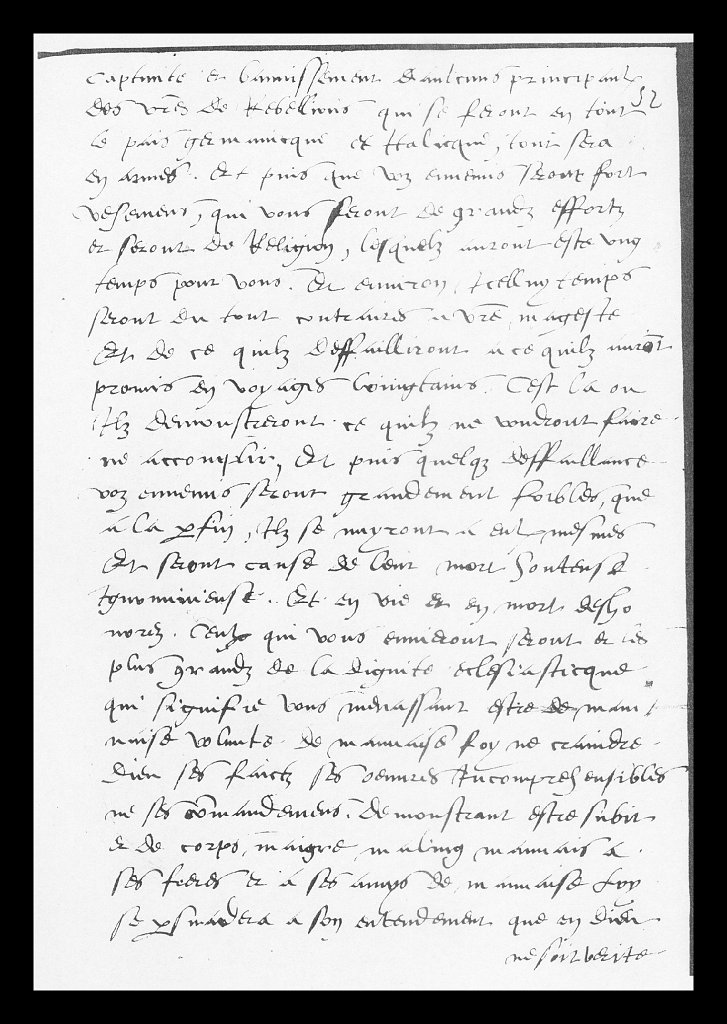 Captivite et bannissement d'aulcuns principaulx
des vrēs de Rebellions qui se feront en tout
le pais germanicque et Italicque, tout sera
en armes. Et puis que voz ennemis seront fort
qui vous feront de grandz effortz
et seront de Religion, lesquelz auront este ung
temps pour vous. Et environ icelluy temps
seront du tout contraires a vrē mageste
Et de ce quilz deffailliront a ce quilz auront
promis en voyages loingtains. C'est la ou
Ilz demonstreront ce quilz ne voudront faire
ne accomplir, Et puis quelqz deffaillance
voz ennemis seront grandement foibles, que
a la pfin, Ilz se nuyront a eulx mesmes
Et seront cause de leur mort honteuse
Ignominieuse. Et en vie et en mort desho
norez. Ceulx qui vous ennuieront seront et les
plus grandz de la dignite eclesiasticque
qui signifie vous menassant estre de mau
uaise volunte de mauuaise foy ne craindre
dieu ses faictz ses oeuures Incomprehensibles
ne ses cōmandemens. Demonstrant estre subit
et de corps, maigre maling mauuais a
ses freres et a ses amys de mauuaise foy
se psuadera a son entendement que en dieu
ne soit verite